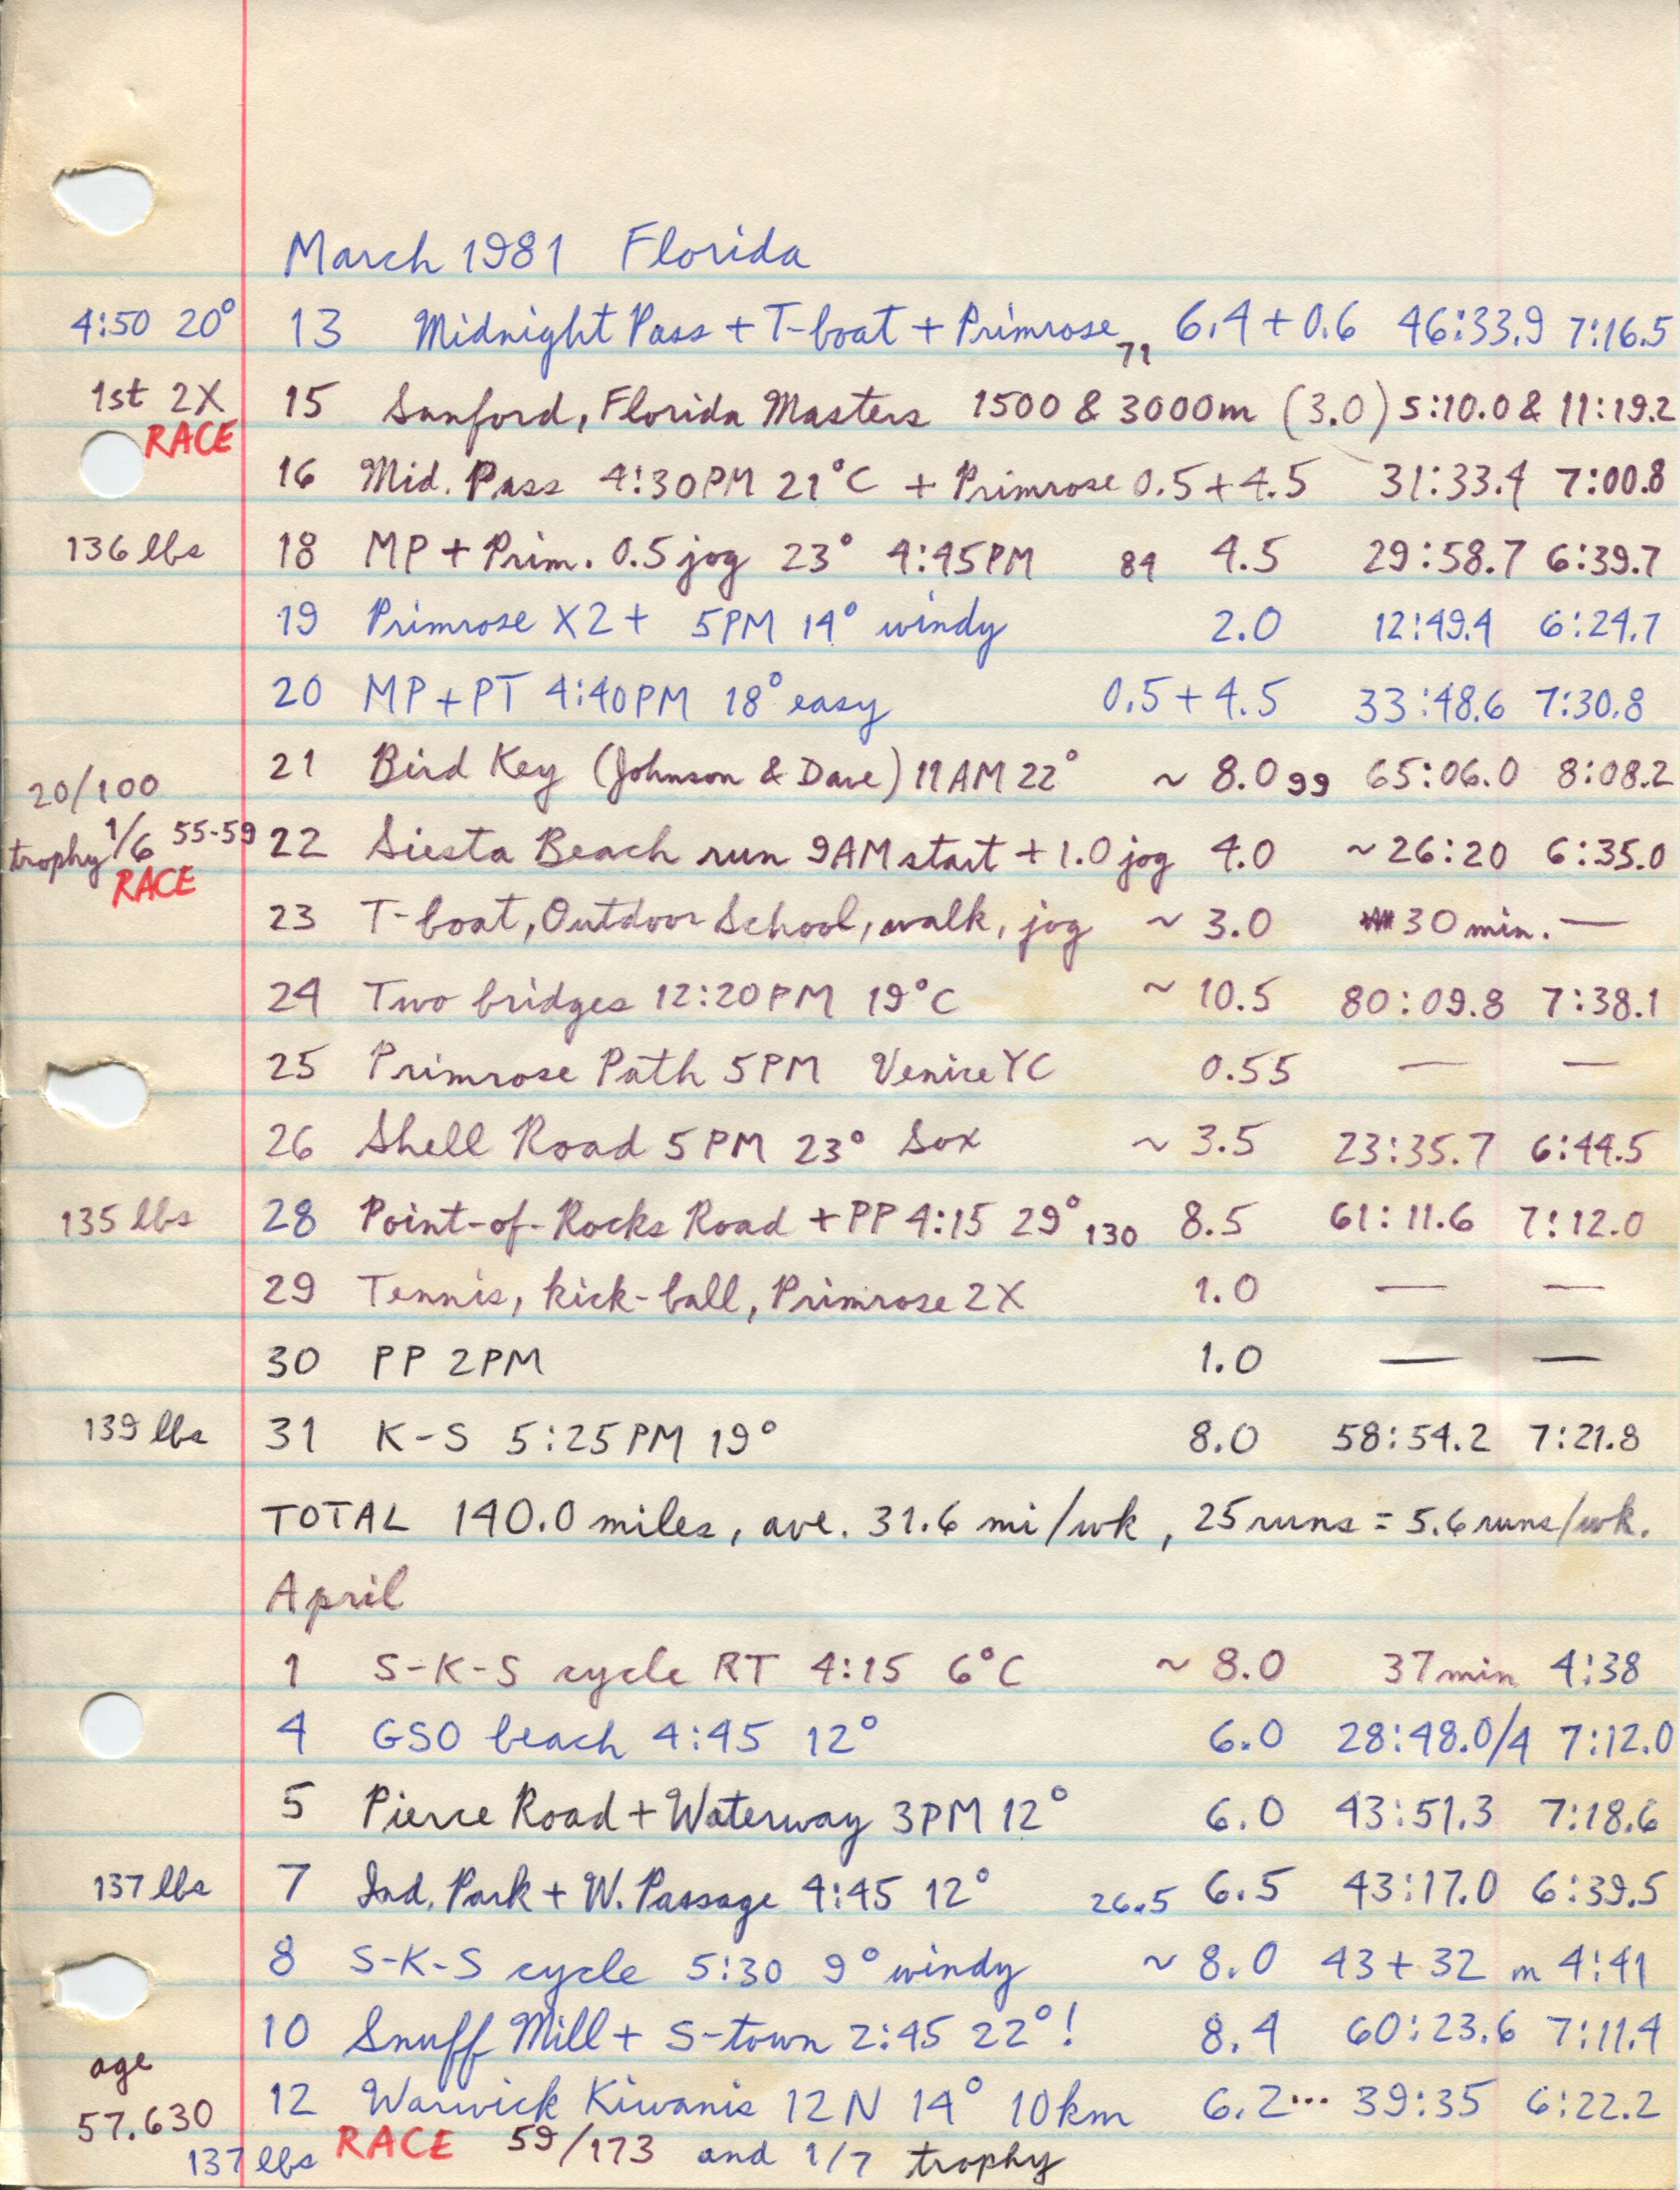 March 1981 Florida
4:50 20° 13 Midnight Pass + T-boat + Primrose 71 6.4 + 0.6 46:33.9 7:16.5
1st 2X RACE 15 Sanford, Florida Masters 1500 & 3000m (3.0) 5:10.0 & 11:19.2
16 Mid. Pass 4:30PM 21°C + Primrose 0.5 + 4.5 31:33.4 7:00.8
136 lbs 18 MP + Prim. 0.5 jog 23° 4:45PM 84 4.5 29:58.7 6:39.7
19 Primrose X2 + 5PM 14° windy 2.0 12:49.4 6:24.7
20 MP + PT 4:40PM 18° easy 0.5 + 4.5 33:48.6 7:30.8
21 Bird Key (Johnson & Dave) 11AM 22° ~ 8.0 99 65:06.0 8:08.2
20/100
trophy 1/6 55-59 RACE 22 Siesta Beach run 9AM start + 1.0 jog 4.0 ~26:20 6:35.0
23 T-boat, Outdoor School, walk, jog ~ 3.0 30 min. —
24 Two bridges 12:20PM 19°C ~ 10.5 80:09.8 7:38.1
25 Primrose Path 5PM Venice YC 0.55 — —
26 Shell Road 5PM 23° Sox ~ 3.5 23:35.7 6:44.5
135 lbs 28 Point-of-Rocks Road + PP 4:15 29° 130 8.5 61:11.6 7:12.0
29 Tennis, kick-ball, Primrose 2X 1.0 — —
30 PP 2PM 1.0 — —
139 lbs 31 K-S 5:25PM 19° 8.0 58:54.2 7:21.8
TOTAL 140.0 miles, ave. 31.6 mi/wk, 25 runs = 5.6 runs/wk.
April
1 S-K-S cycle RT 4:15 6°C ~ 8.0 37 min 4:38
4 GSO beach 4:45 12° 6.0 28:48.0/4 7:12.0
5 Pierce Road + Waterway 3PM 12° 6.0 43:51.3 7:18.6
137 lbs 7 Ind. Park + W. Passage 4:45 12° 26.5 6.5 43:17.0 6:39.5
8 S-K-S cycle 5:30 9° windy ~ 8.0 43 + 32 m 4:41
10 Snuff Mill + S-town 2:45 22°! 8.4 60:23.6 7:11.4
age
57.630 12 Warwick Kiwanis 12N 14° 10km 6.2... 39:35 6:22.2
137 lbs RACE 59/173 and 1/7 trophy